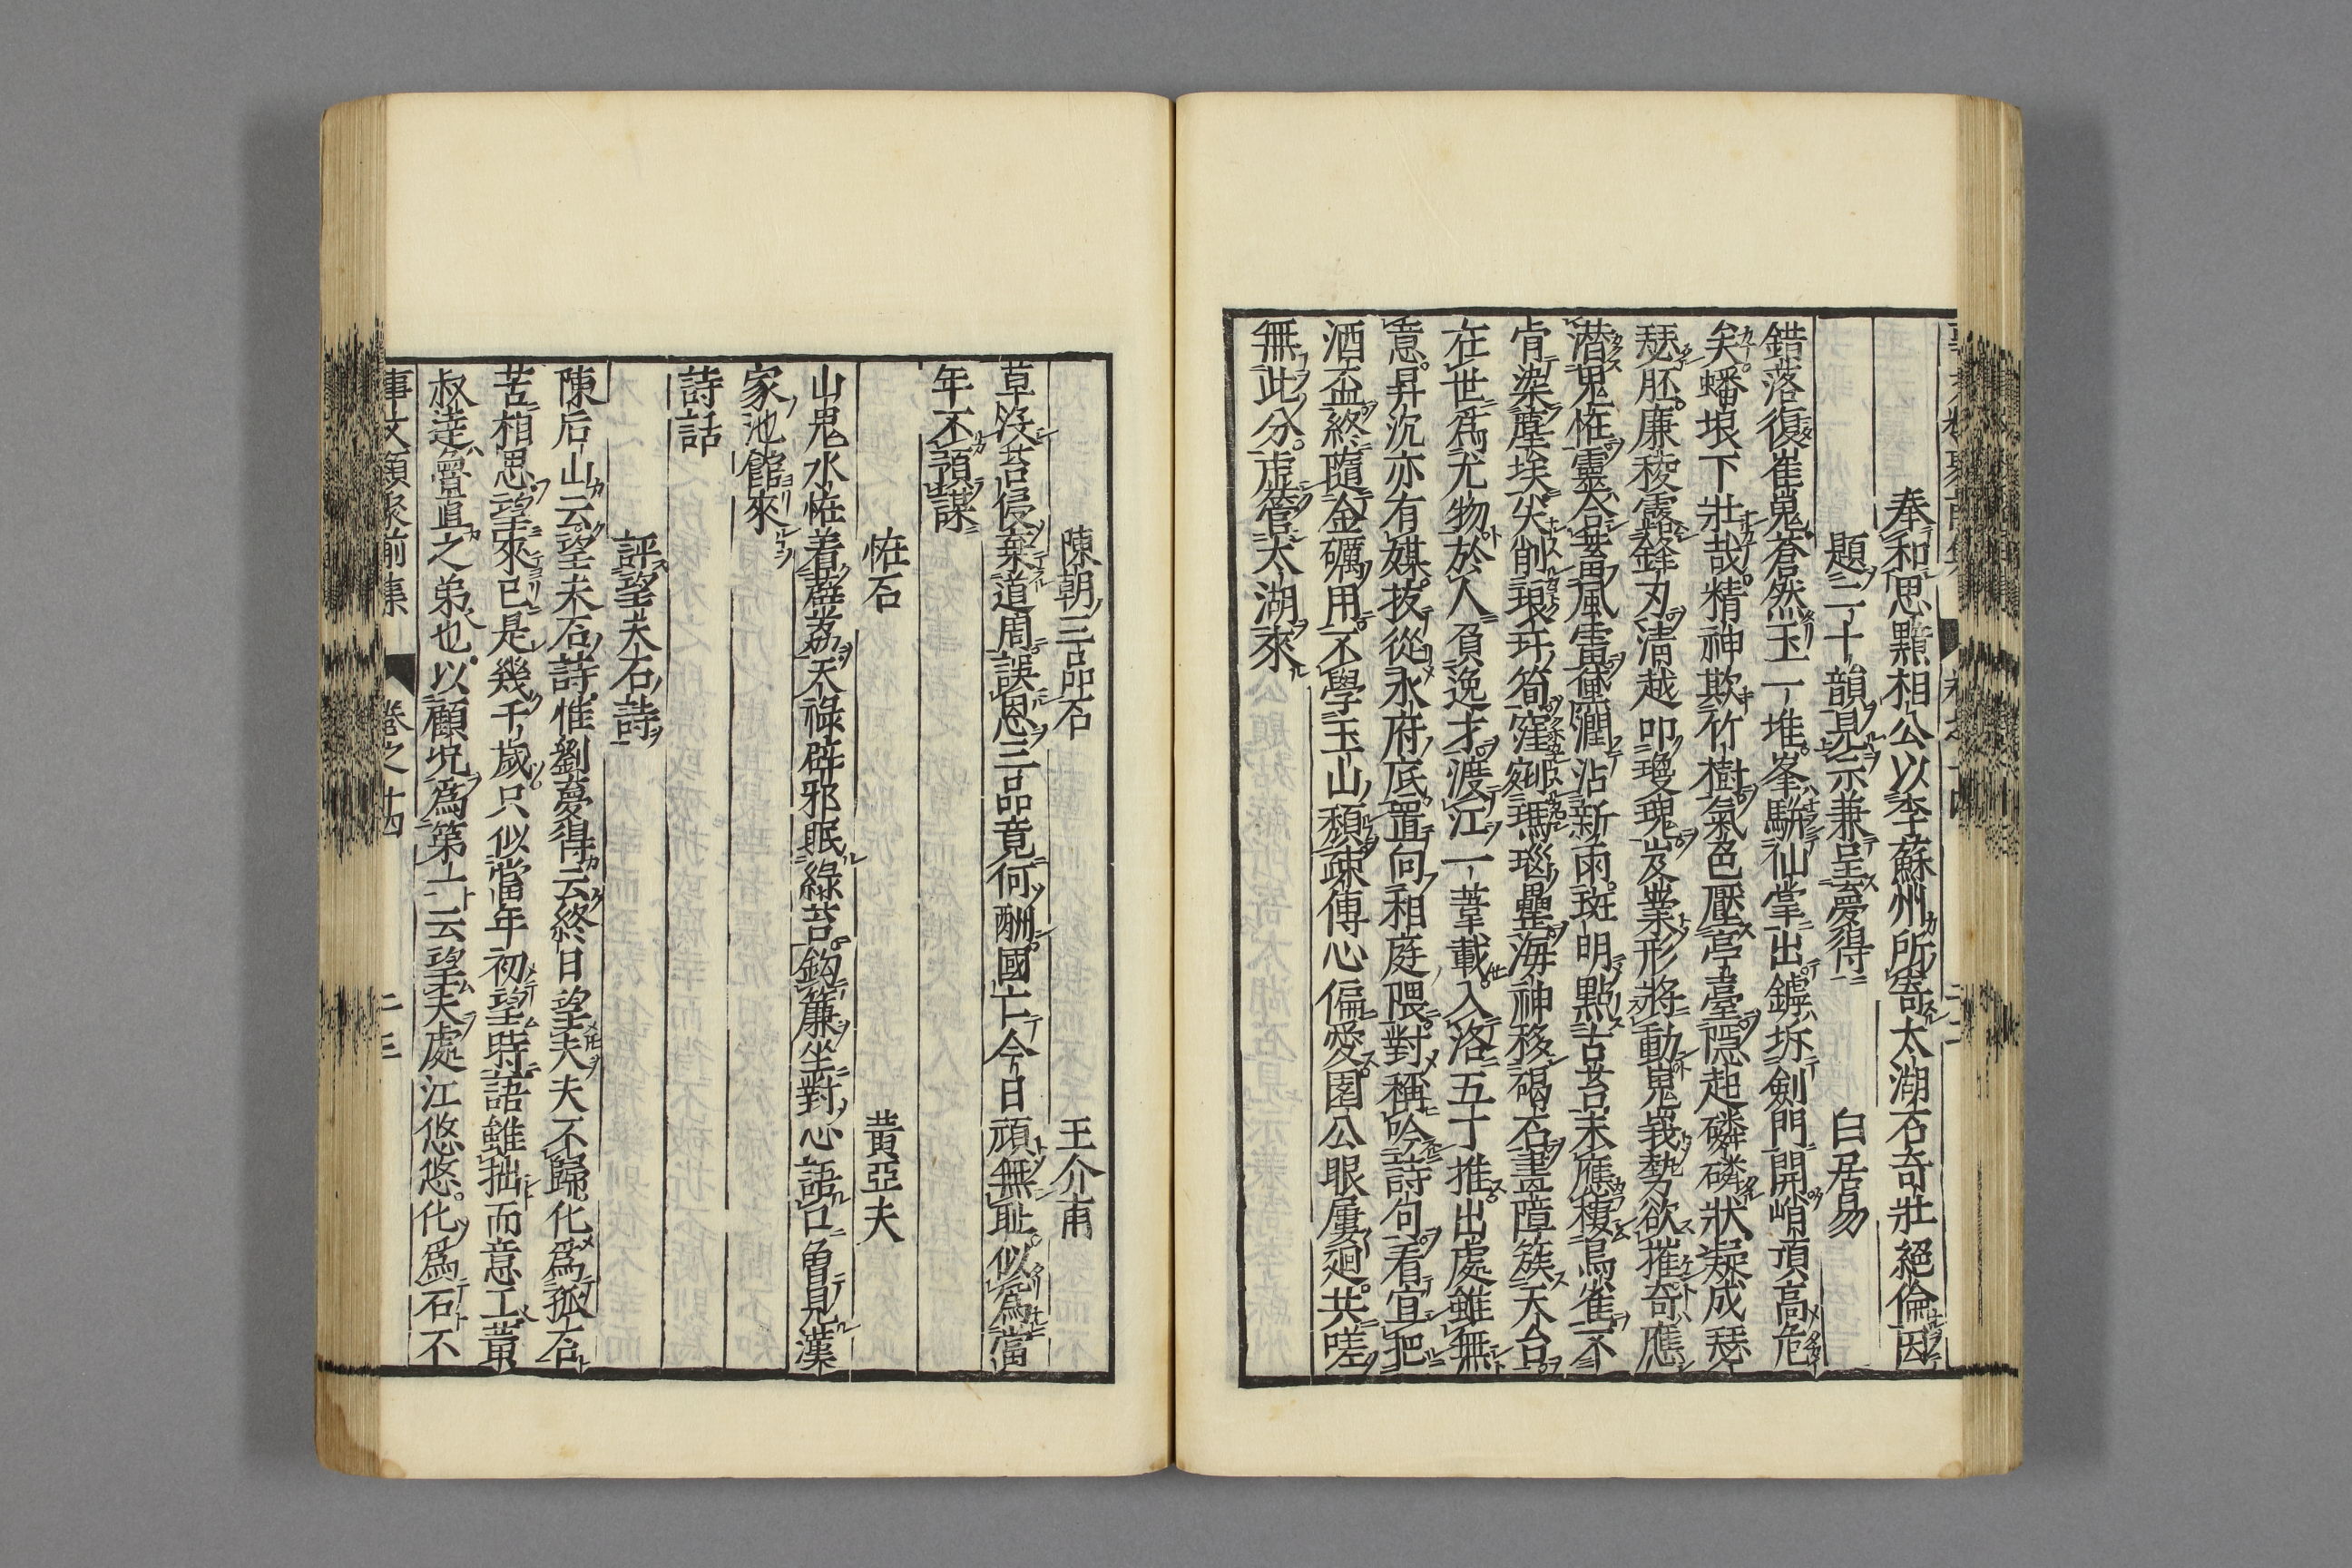 奉和思黯相公以李蘇州所寄太湖石奇壯絕倫因
題二十韻見示兼呈夢得 白居易
錯落復崔嵬蒼然玉一堆峯駢仙掌出罅坼劍門開峭頂高危
矣蟠根下壯哉精神欺竹樹氣色壓亭臺隱起磷磷狀凝成瑟
瑟胚廉稜露鋒刃清越叩瓊瑰岌業形將動嵬峩勢欲摧奇應
潛鬼恠靈合蓄風雷黛潤沾新雨斑明點古苔未應棲鳥雀不
肯染塵埃尖削琅玕筍窪剜瑪瑙罍海神移碣石畫障簇天台
在世爲尤物於人負逸才渡江一葦載入洛五丁推出處雖無
意昇沉亦有媒拔從水府底置向相庭隈對稱吟詩句看宜把
酒盃終隨金礪用不學玉山頹疎傅心偏愛園公眼屢迴共嗟
無此分虛管太湖來
陳朝三品石 王介甫
草沒苔侵棄道周誤恩三品竟何酬國亡今日頑無恥似爲當
年不預謀
恠石 黃亞夫
山鬼水恠着薜荔天祿辟邪眠綠苔鈎簾坐對心語口曾見漢
家池館來
詩話
評望夫石詩
陳后山云望夫石詩惟劉夢得云終日望夫夫不歸化爲孤石
苦相思望來已是幾千歲只似當年初望時語雖拙而意工黃
叔達魯直之弟也以顧况爲第一云望夫處江悠悠化爲石不
事文類聚前集 卷之十四 二三